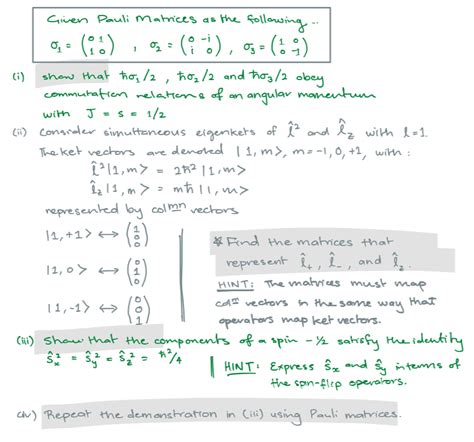 Given Pauli Matrices as the following..
σ₁ = (0 1 / 1 0) , σ₂ = (0 -i / i 0) , σ₃ = (1 0 / 0 -1)
(i) show that ħσ₁/2 , ħσ₂/2 and ħσ₃/2 obey
commutation relations of an angular momentum
with J = s = 1/2
(ii) Consider simultaneous eigenkets of l̂² and l̂z with l=1.
The ket vectors are denoted |1,m>, m=-1,0,+1, with:
l̂²|1,m> = 2ħ²|1,m>
l̂z|1,m> = mħ|1,m>
represented by colmn vectors
|1,+1> ↔ (1 / 0 / 0)
|1,0> ↔ (0 / 1 / 0)
|1,-1> ↔ (0 / 0 / 1)
* Find the matrices that
represent l̂+, l̂-, and l̂z.
HINT: The matrices must map
colmn vectors in the same way that
operators map ket vectors.
(iii) Show that the components of a spin -1/2 satisfy the identity
ŝx² = ŝy² = ŝz² = ħ²/4
HINT: Express ŝx and ŝy in terms of
the spin-flip operators.
(iv) Repeat the demonstration in (iii) using Pauli matrices.